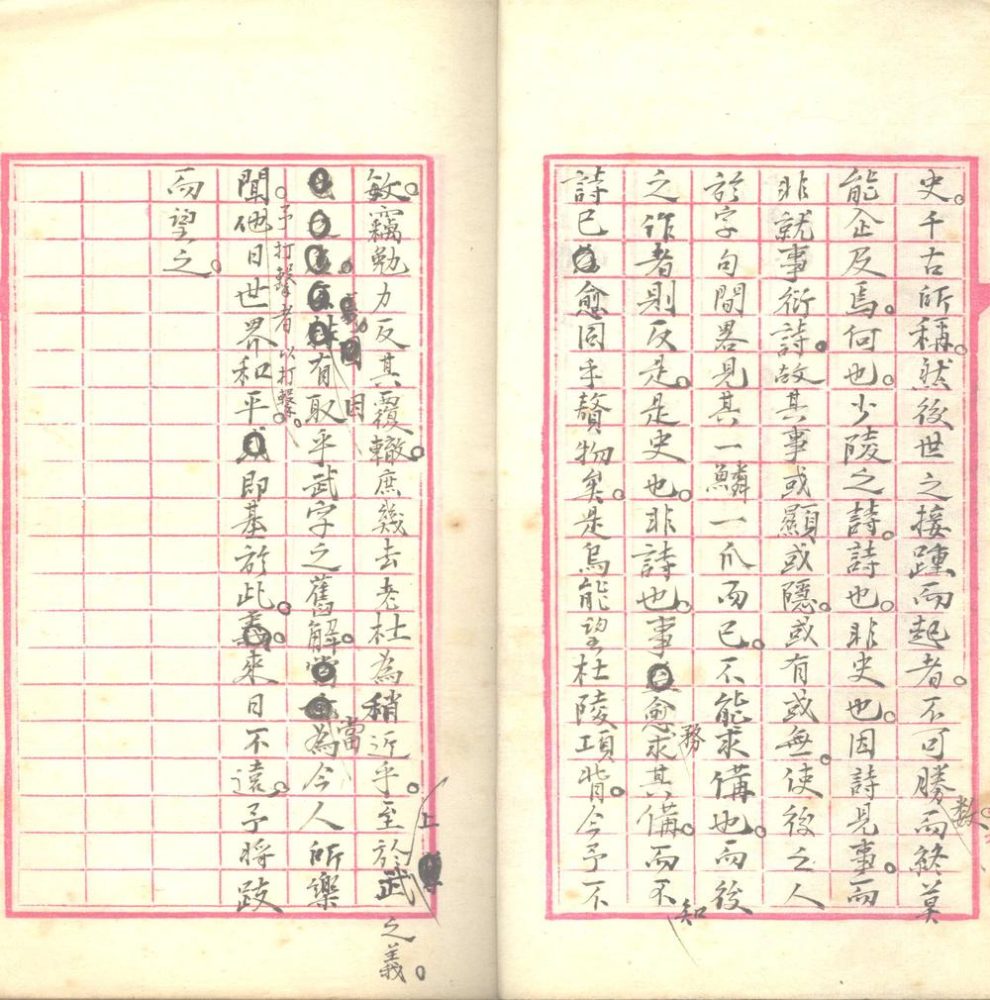 史。千古所稱。然後世之接踵而起者。不可勝數。而終莫
能企及焉。何也。少陵之詩。詩也。非史也。因詩見事。而
非就事衍詩。故其事或顯或隱。或有或無。使後之人
於字句間畧見其一鱗一爪而已。不能求備也。而後
之作者則反是。是史也。非詩也。事愈求其備。而不知
詩已愈同乎贅物矣。是烏能望杜陵項背。今予不
敏。竊勉力反其覆轍。庶幾去老杜為稍近乎。至於武之義。
有取乎武字之舊解。當為今人所樂
聞。予打擊者以打擊。他日世界和平。即基於此。來日不遠。予將跂
而望之。